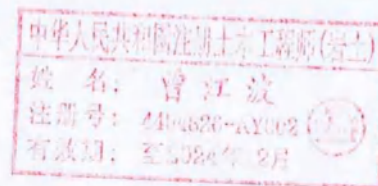 中华人民共和国注册土木工程师(岩土)
姓 名: 曾江波
注册号: 4404626-AY002
有效期: 至2024年12月